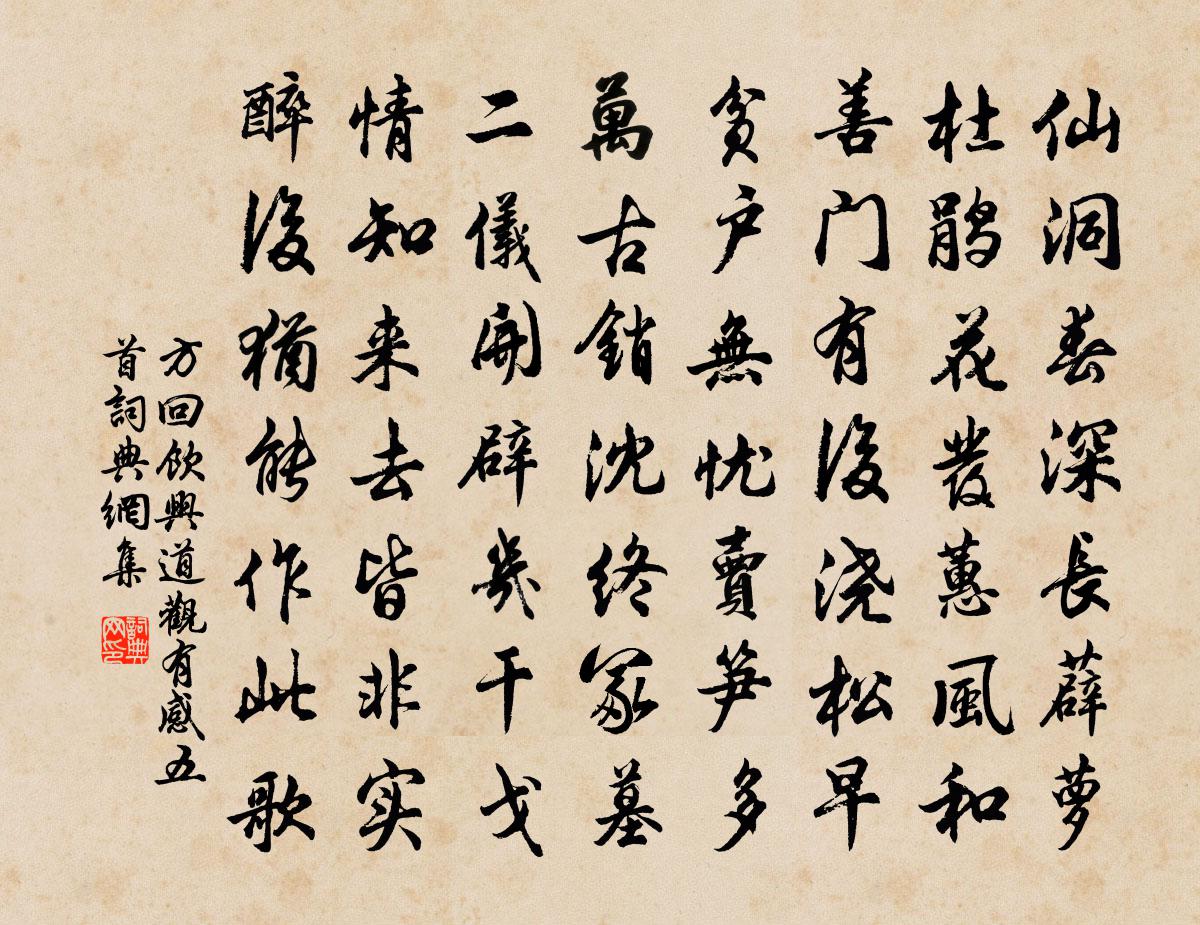 仙洞春深長薜萝
杜鹃花發蕙風和
善门有後浇松早
貧户無忧賣笋多
萬古銷沈终冢墓
二儀開辟幾干戈
情知来去皆非实
醉後猶能作此歌
方回飲興道觀有感五
首詞典網集
詞典网印